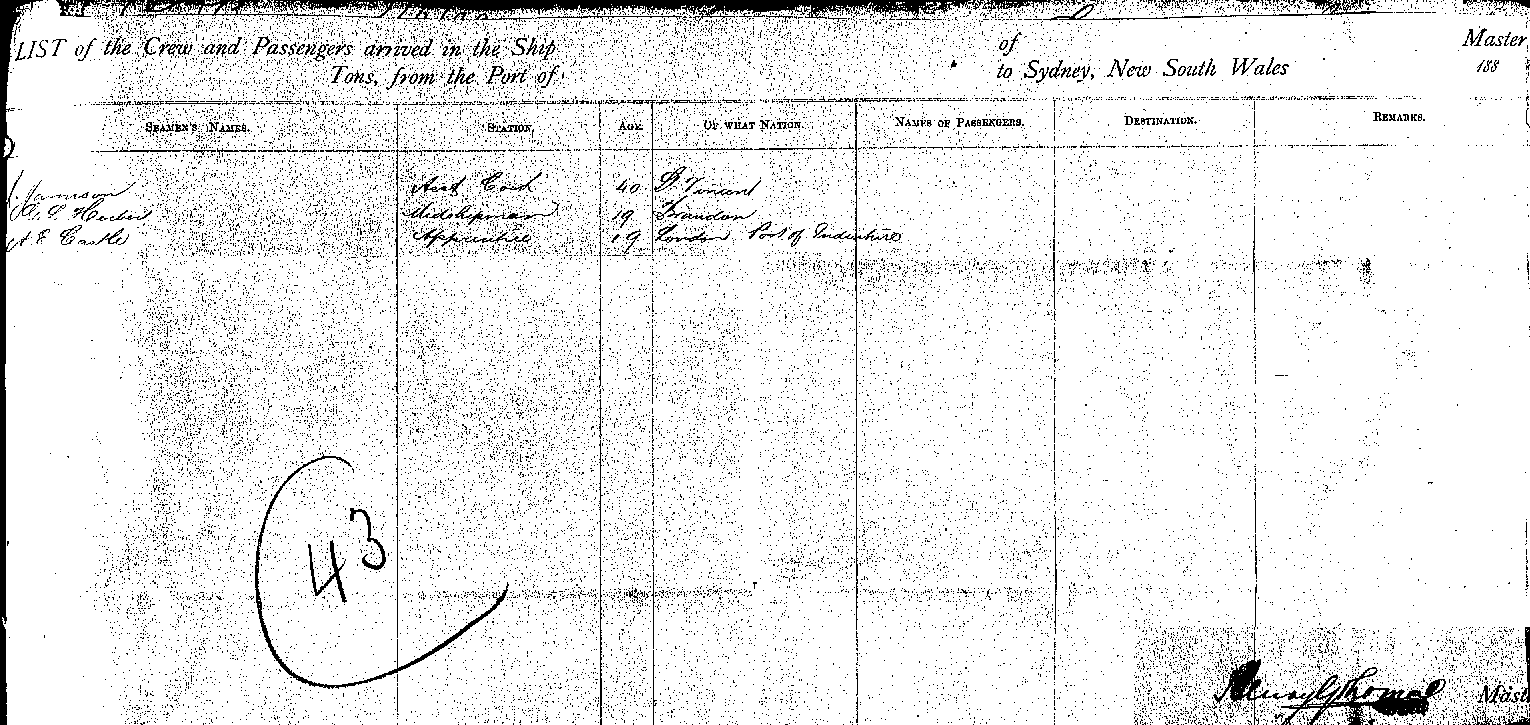 LIST of the Crew and Passengers arrived in the Ship of Master
Tons, from the Port of to Sydney, New South Wales 188
SEAMEN'S NAMES. STATION. AGE. OF WHAT NATION. NAMES OF PASSENGERS. DESTINATION. REMARKS.
Jamison Asst Cook 40
Midshipman 19
A E Castle Apprentice 19 London Port of
43
Henry G Thomas Mast